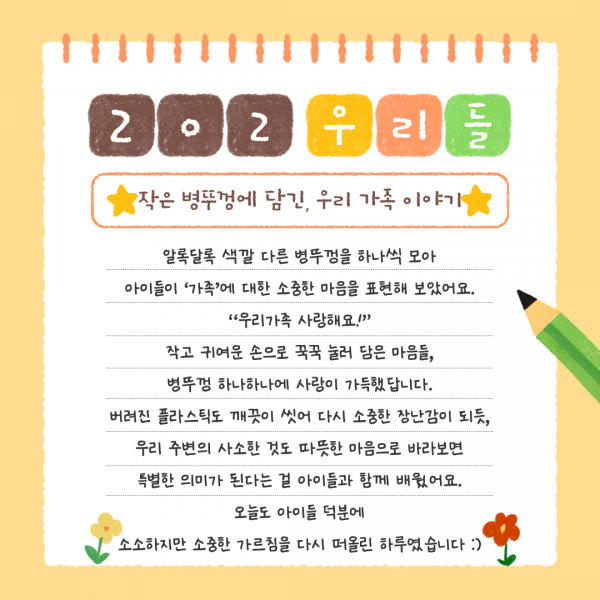 202 우리들
작은 병뚜껑에 담긴, 우리 가족 이야기
알록달록 색깔 다른 병뚜껑을 하나씩 모아
아이들이 ‘가족’에 대한 소중한 마음을 표현해 보았어요.
“우리가족 사랑해요!”
작고 귀여운 손으로 꾹꾹 눌러 담은 마음들,
병뚜껑 하나하나에 사랑이 가득했답니다.
버려진 플라스틱도 깨끗이 씻어 다시 소중한 장난감이 되듯,
우리 주변의 사소한 것도 따뜻한 마음으로 바라보면
특별한 의미가 된다는 걸 아이들과 함께 배웠어요.
오늘도 아이들 덕분에
소소하지만 소중한 가르침을 다시 떠올린 하루였습니다 :)